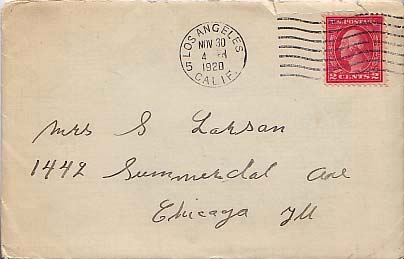 LOS ANGELES
NOV 30
4 PM
1920
5 CALIF.
U.S. POSTAGE
2 CENTS 2
Mrs S Larson
1442 Summerdal Ave
Chicago Ill